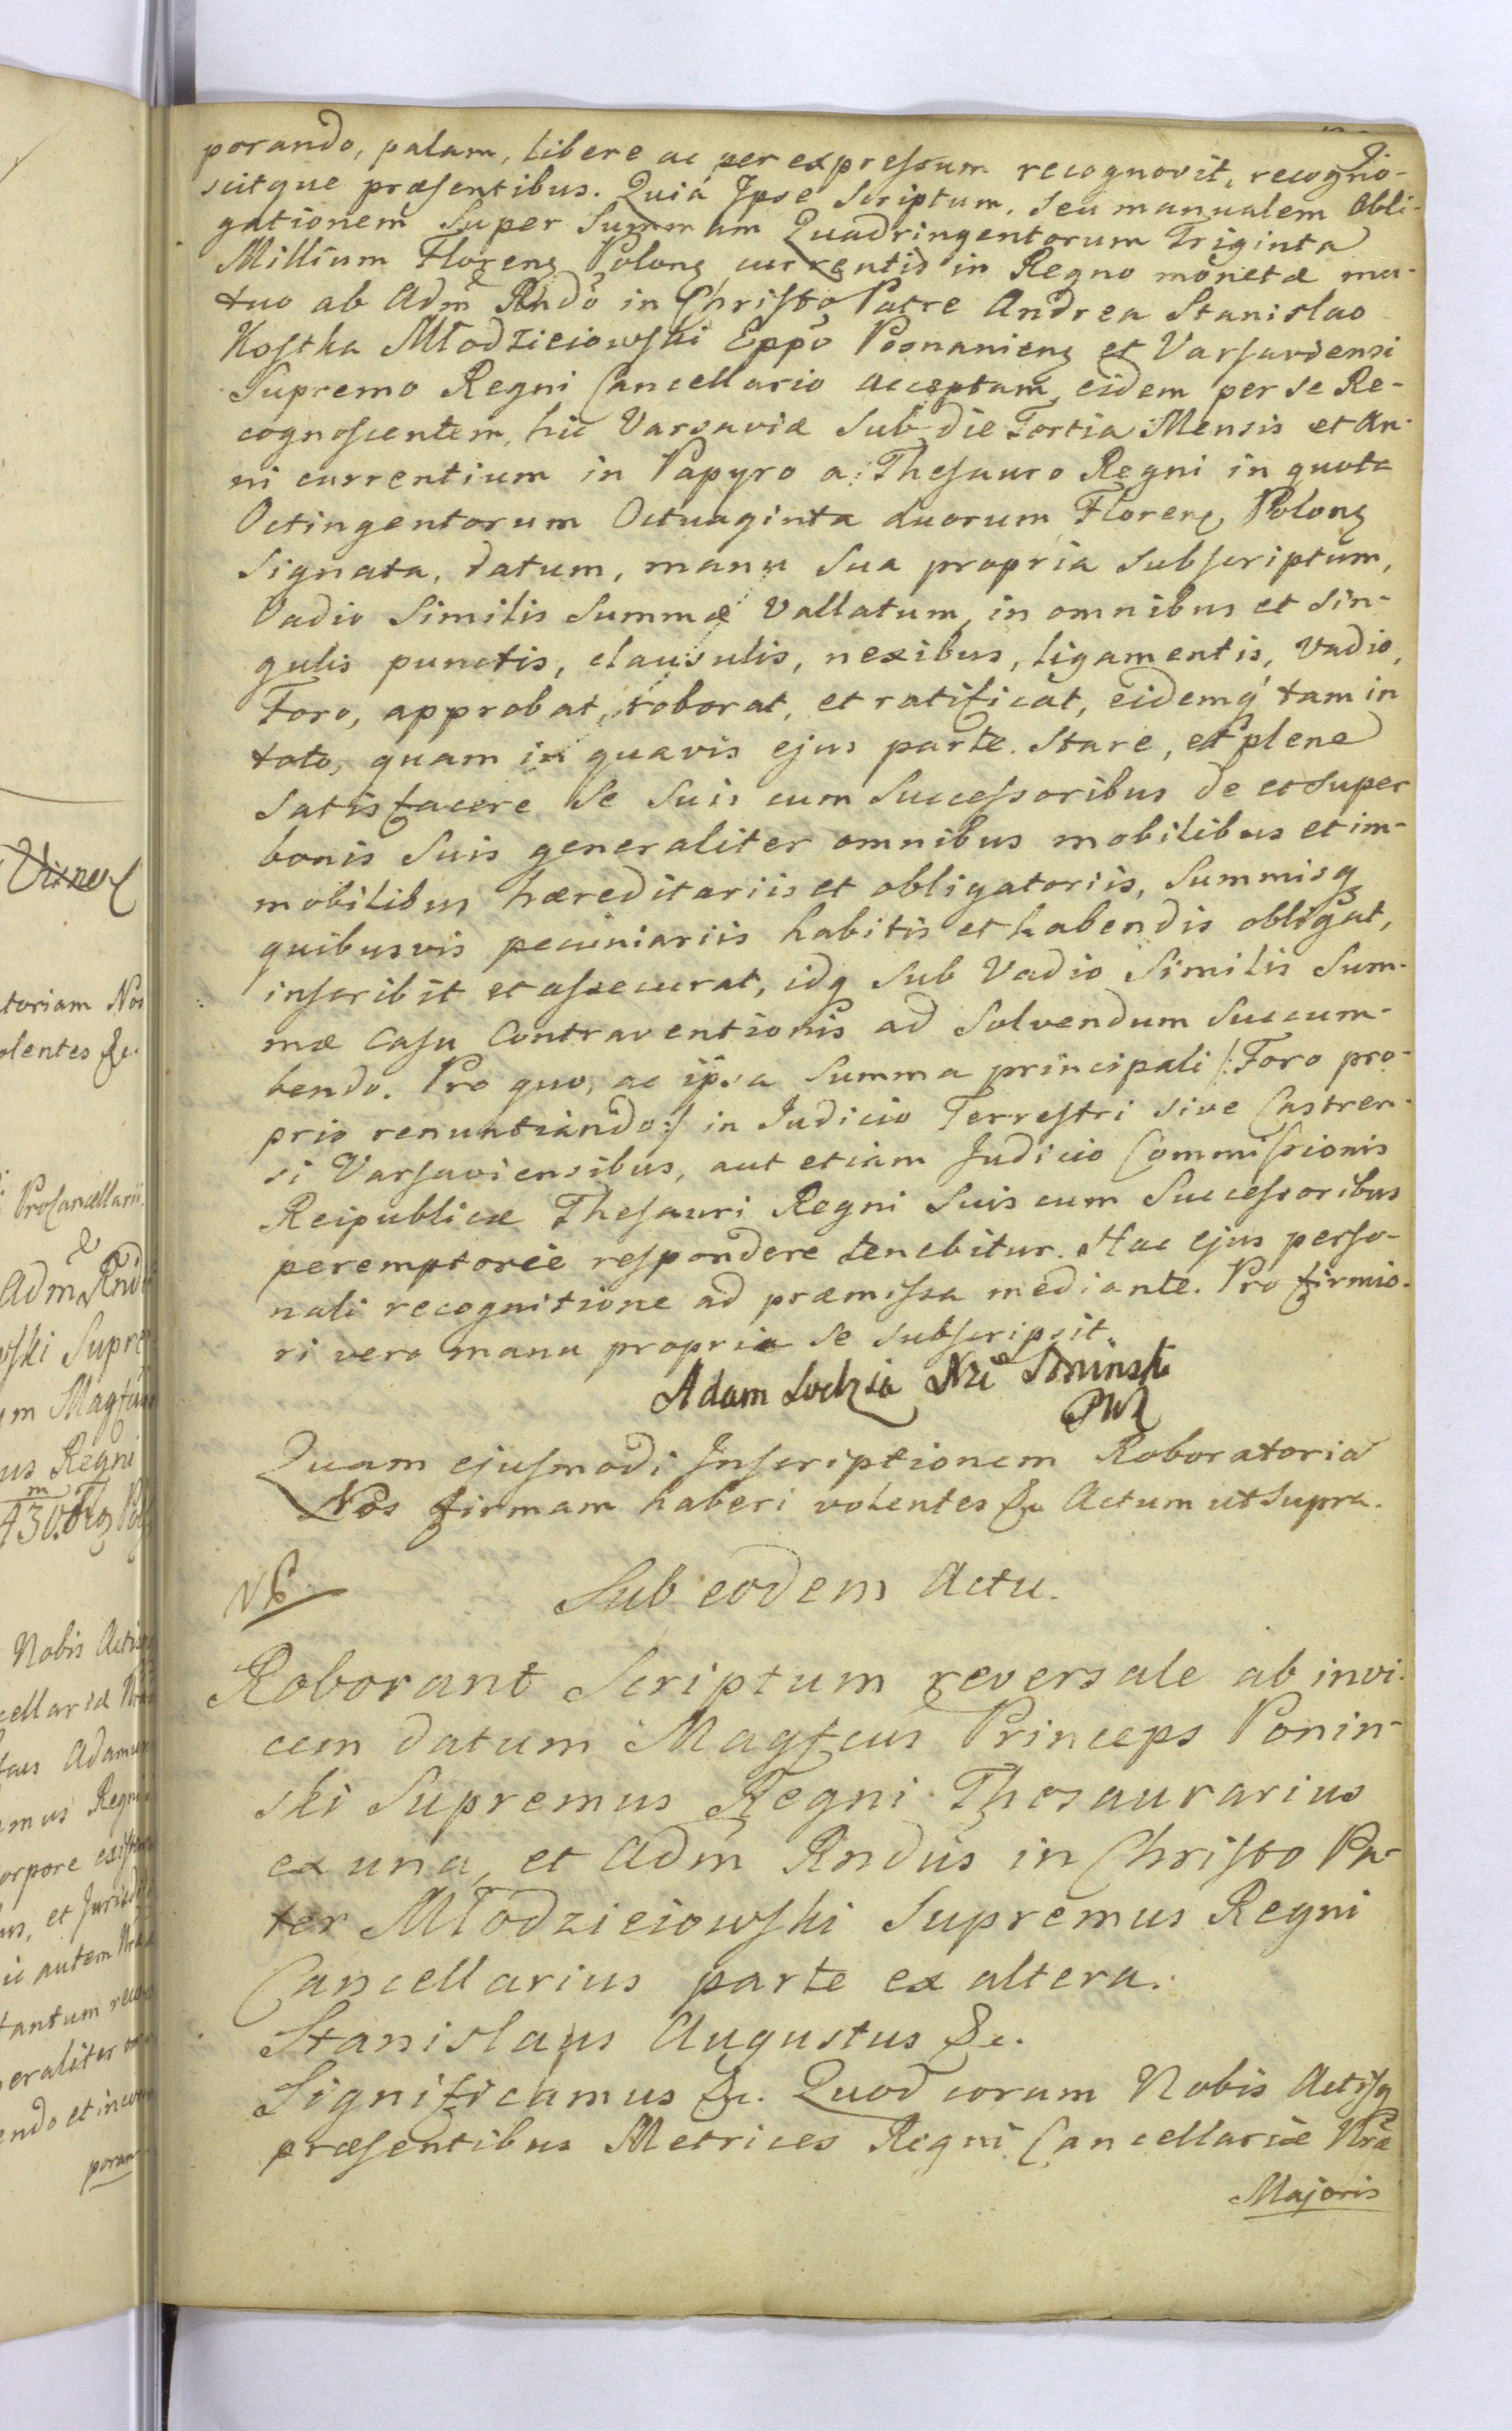 porando, palam, libere ac per expressum recognovit, recogno-
scitque præsentibus. Quia Ipse Scriptum, seu manualem Obli-
gationem Super Summam Quadringentorum Triginta
Millium Floreng Polong currentis in Regno monetæ mu-
tuo ab Adm Rndo in Christo Patre Andrea Stanislao
Kostka Młodzieiowski Eppo Posnanieng et Varsaviensi
Supremo Regni Cancellario acceptam, eidem per se Re-
cognoscentem, hic Varsaviæ Sub die Tertia Mensis et An-
ni currentium in Papyro a Thesauro Regni in quota
Octingentorum Octuaginta duorum Floreng Polong
Signata, datum, manu Sua propria Subscriptum,
Vadio Similis Summæ Vallatum, in omnibus et Sin-
gulis punctis, clausulis, nexibus, ligamentis, Vadio,
Foro, approbat, roborat, et ratificat, eidemq tam in
toto, quam in quavis ejus parte. Stare, et plene
Satisfacere Se Suis cum Successoribus de et super
bonis Suis generaliter omnibus mobilibus et im-
mobilibus hæreditariis et obligatoriis, Summisq
quibusvis pecuniariis habitis et habendis obligat,
inscribit et assecurat, idq Sub Vadio Similis Sum-
mæ Casu Contraventionis ad Solvendum Succum-
bendo. Pro quo, ac ipsa Summa principali /: Foro pro-
prio renuntiando :/ in Judicio Terrestri sive Castren-
si Varsaviensibus, aut etiam Judicio Commissionis
Reipublicæ Thesauri Regni Suis cum Successoribus
peremptorie respondere tenebitur. Hac ejus perso-
nali recognitione ad præmissa mediante. Pro firmio-
ri vero manu propria Se Subscripsit.
Adam Lodzia Xże Poninski
PWK
Quam ejusmodi Inscriptionem Roboratoria
Nos firmam haberi volentes &c Actum ut supra.
NB. Sub eodem Actu.
Roborant Scriptum reversale ab invi-
cem datum Magfcus Princeps Ponin-
ski Supremus Regni Thesaurarius
ex una, et Adm Rndus in Christo Pa-
ter Młodzieiowski Supremus Regni
Cancellarius parte ex altera.
Stanislaus Augustus &c.
Significamus &c. Quod coram Nobis Actisq
præsentibus Metrices Regni Cancellariæ Nræ
Majoris